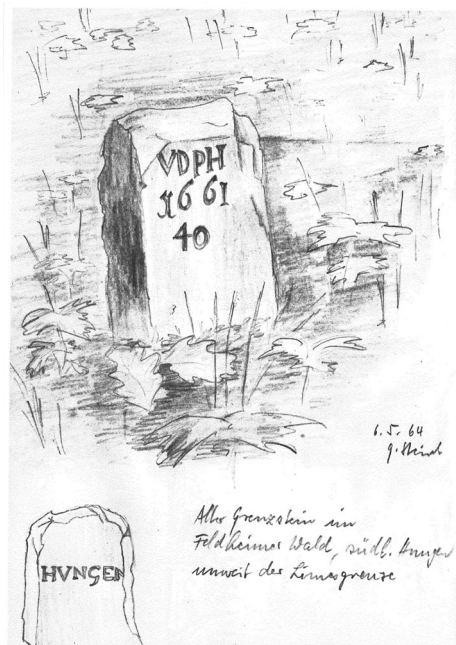 VDPH
1661
40
6.5.64
HVNGEN
Alter Grenzstein im
Feldheimer Wald, südl. Hungen
unweit der Limesgrenze